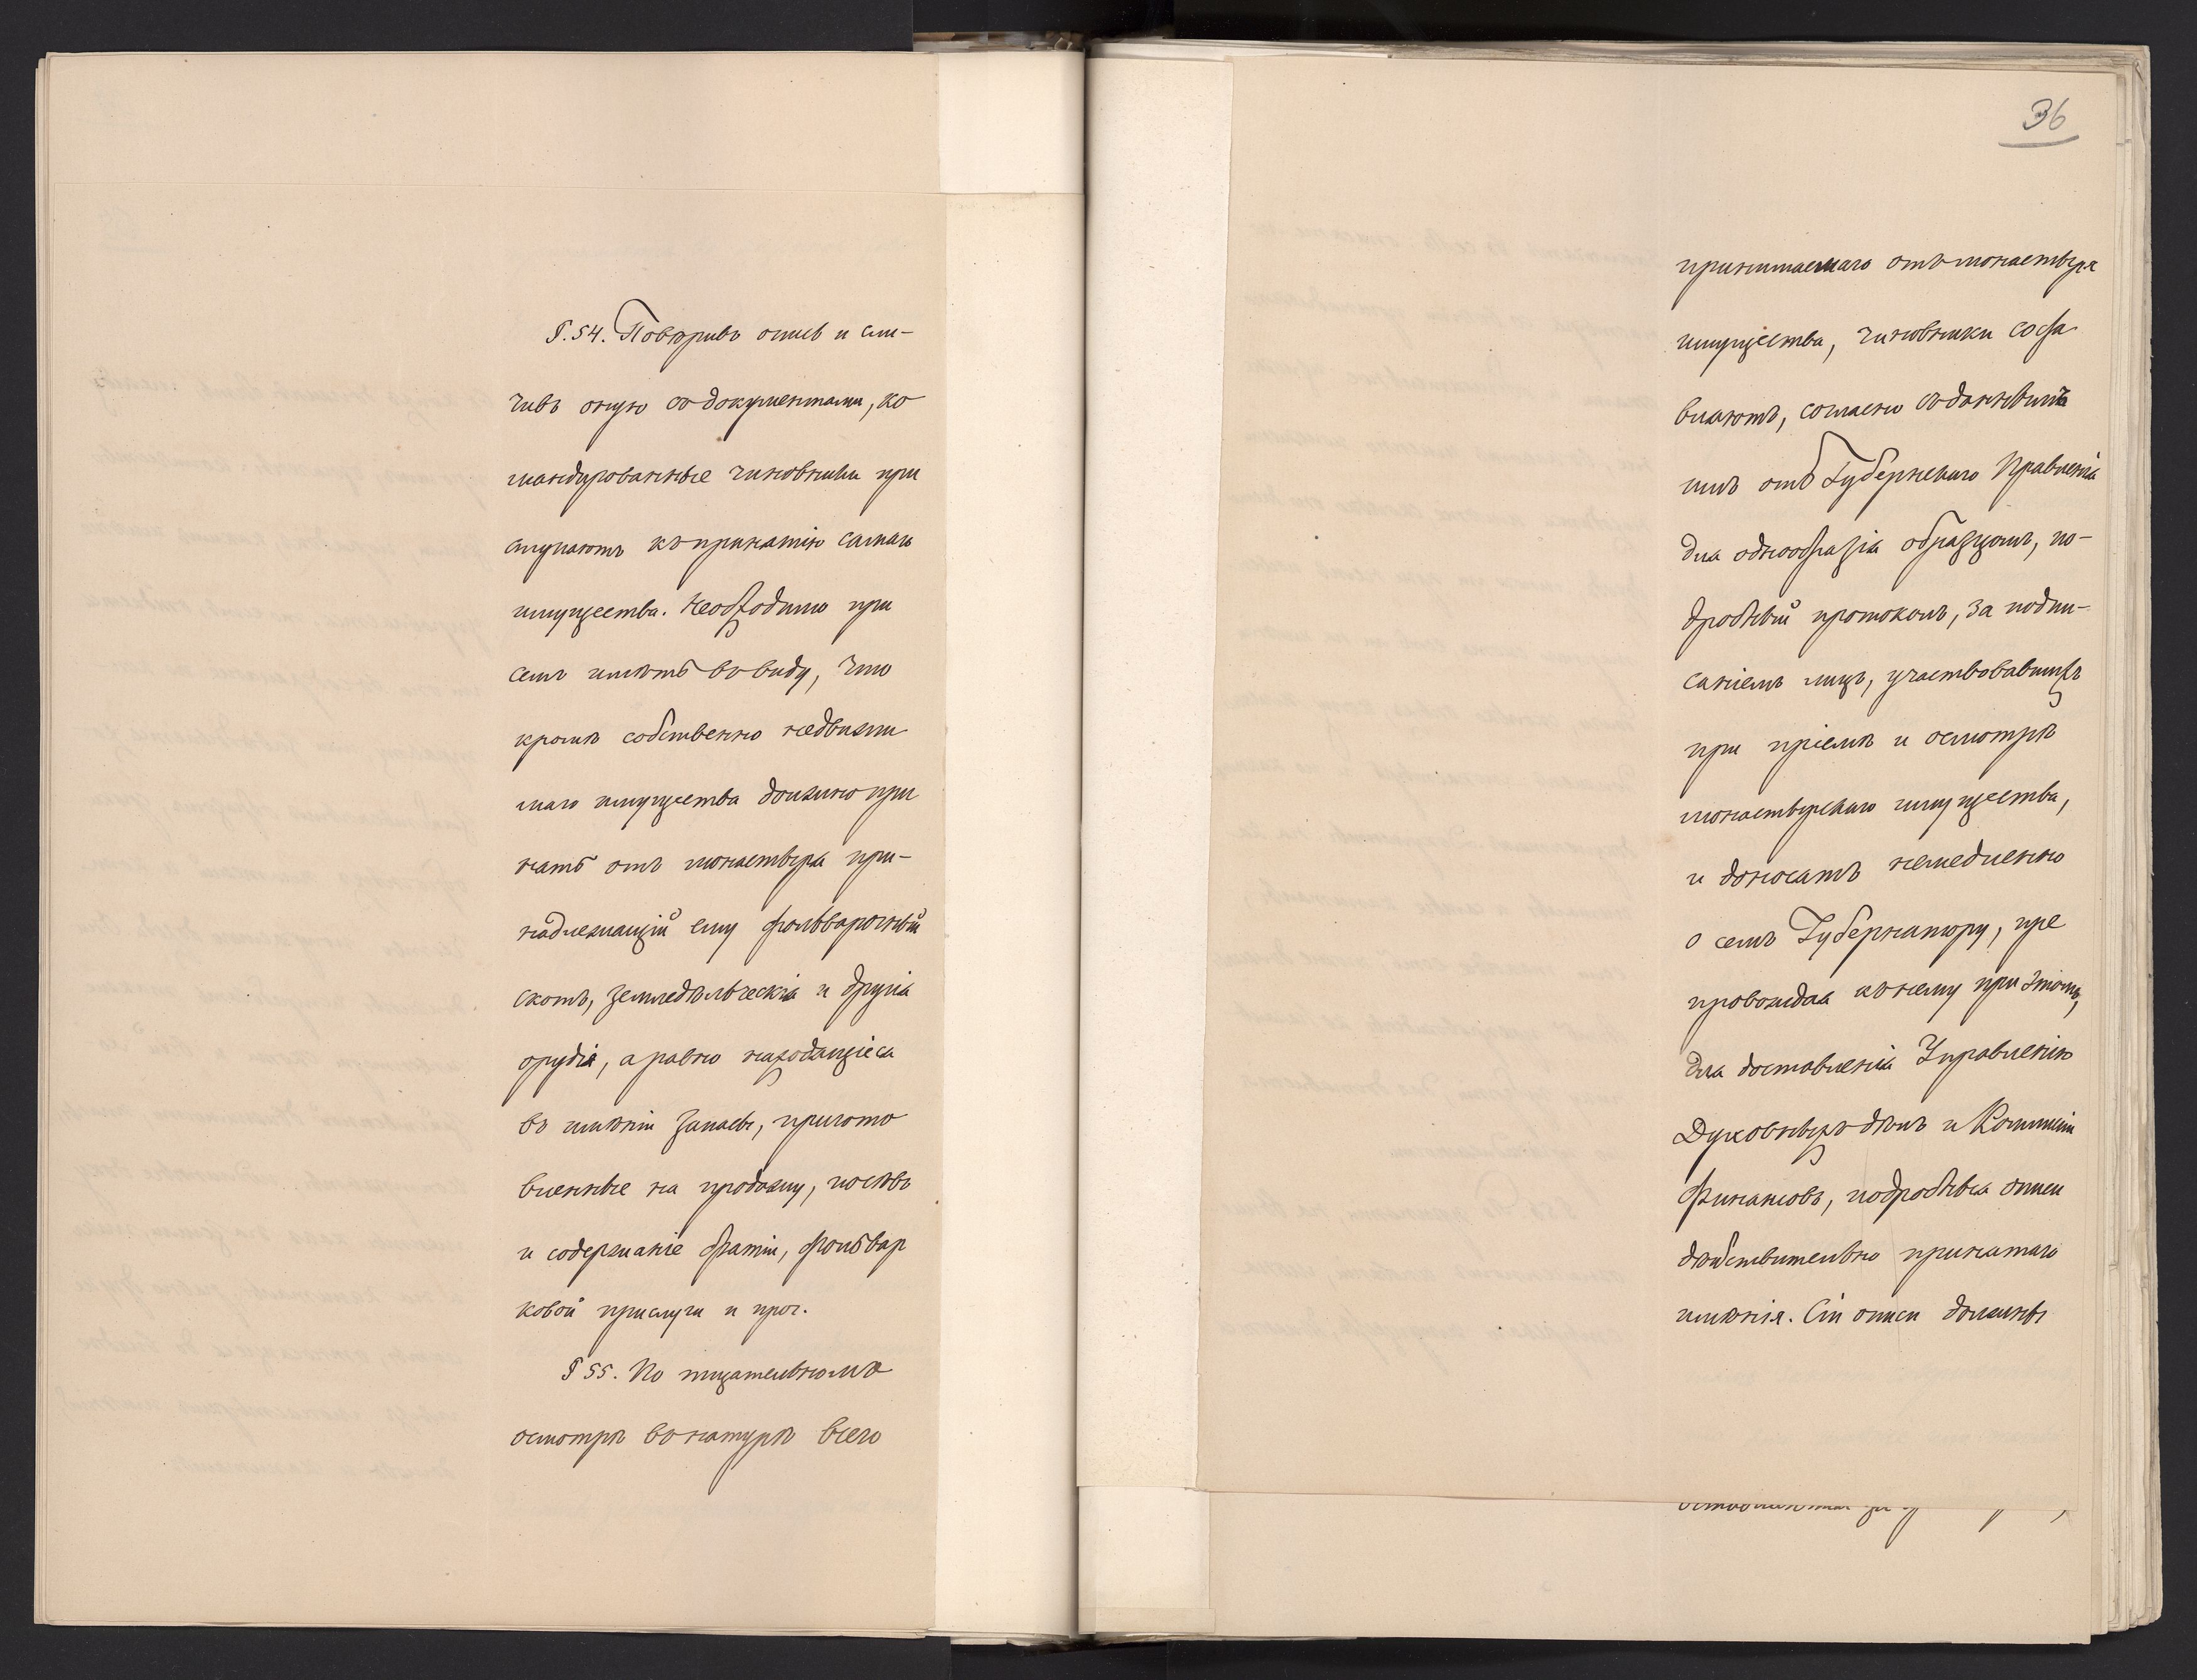 §.54. Повѣривъ опись и сли-
чивъ оную съ документами, ко
мандированные чиновники при
ступаютъ къ принятію самаго
имущества. Необходимо при
семъ имѣть въ виду, что
кромѣ собственно недвижи
маго имущества должно при
нять отъ монастыря при-
надлежащій ему фольварочный
скотъ, земледѣльческія и другія
орудія, а равно находящіеся
въ имѣніи запасы, пригото
вленные на продажу, посѣвъ
и содержаніе братіи, фольвар
ковой прислуги и проч.
§ 55. По тщательномъ
осмотрѣ въ натурѣ всего
36
принимаемаго отъ монастыря
имущества, чиновники соста
вляютъ, согласно съ даннымъ
имъ отъ Губернскаго Правленія
для однообразія образцомъ, по-
дробный протоколъ, за подпи-
саніемъ лицъ, участвовавшихъ
при пріемѣ и осмотрѣ
монастырскаго имущества,
и доносятъ немедленно
о семъ Губернатору, пре
провождая къ нему при этомъ,
для доставленія Управленію
Духовныхъ дѣлъ и Коммисіи
Финансовъ, подробныя описи
дѣйствительно принятаго
имѣнія. Сіи описи должны